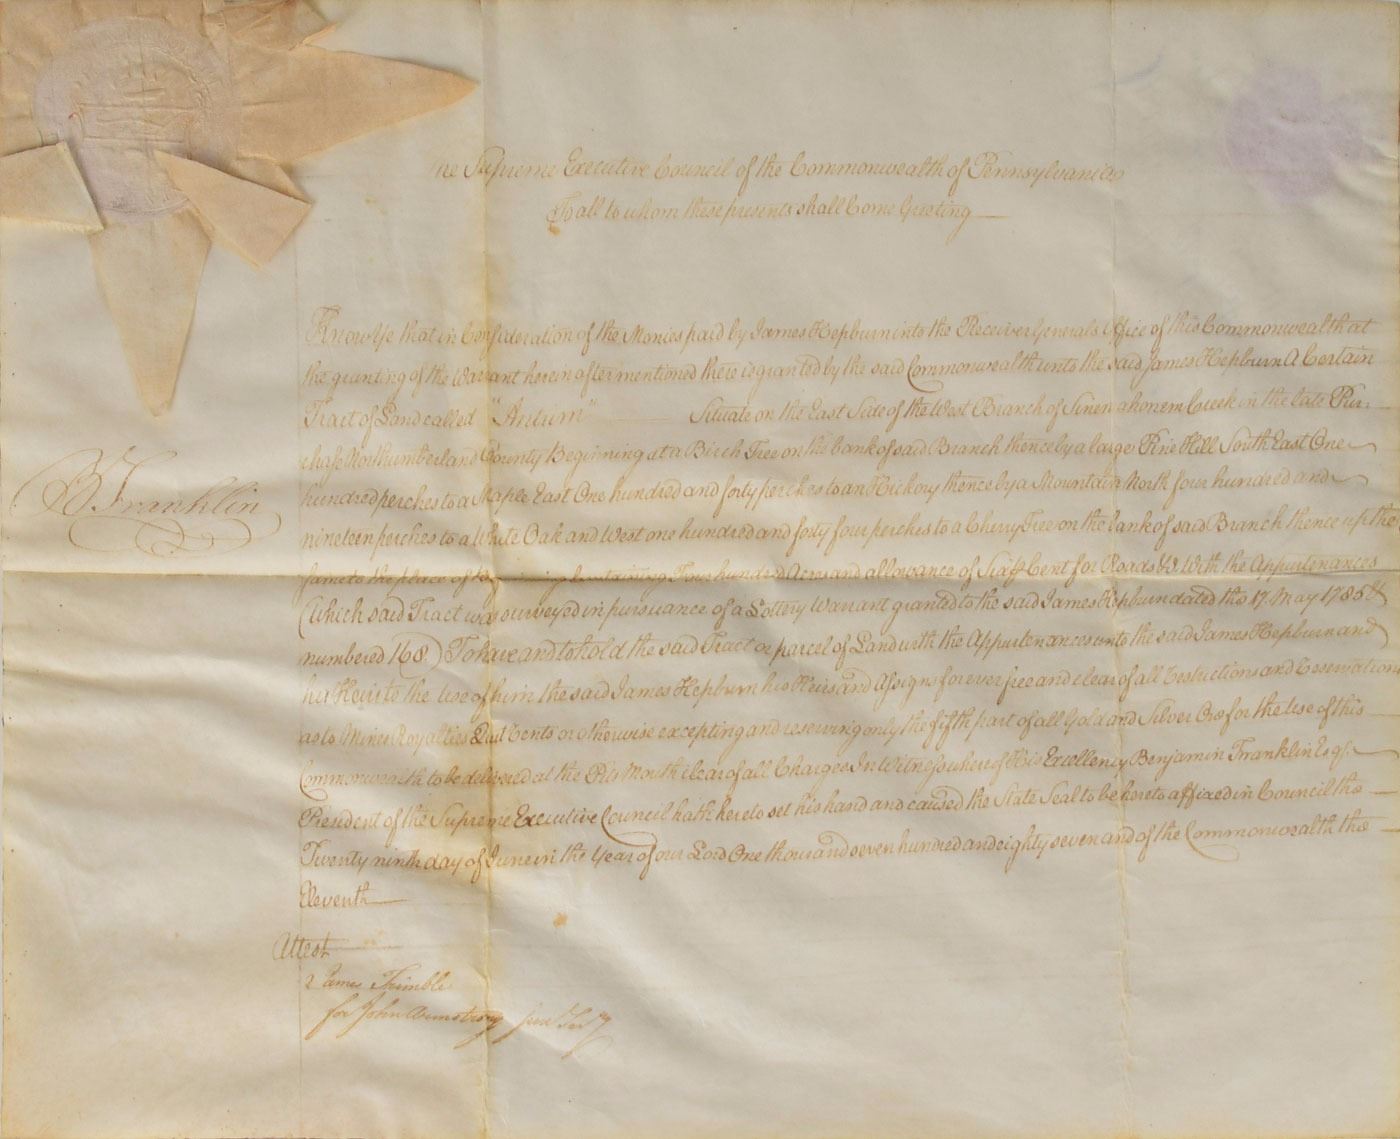 The Supreme Executive Council of the Commonwealth of Pennsylvania
To all to whom these presents shall Come Greeting
Know Ye that in Consideration of the Monies paid by James Hepburn into the Receiver Generals Office of this Commonwealth at
the granting of the Warrant herein after mentioned there is granted by the said Commonwealth unto the said James Hepburn A Certain
Tract of Land called "Antium" Situate on the East Side of the West Branch of Sinemahonem Creek in the late Pur-
chase Northumberland County Beginning at a Birch Tree on the bank of said Branch thence by a large Pine Hill South East One
hundred perches to a Maple East One hundred and forty perches to an Hickory thence by a Mountain North four hundred and
nineteen perches to a White Oak and West one hundred and forty four perches to a Cherry Tree on the bank of said Branch thence up the
same to the place of beginning Containing Four hundred Acres and allowance of Six P Cent for Roads &c With the Appurtenances
(which said Tract was surveyed in pursuance of a Lottery Warrant granted to the said James Hepburn dated the 17 May 1785 &
numbered 168) To have and to hold the said Tract or parcel of Land with the Appurtenances unto the said James Hepburn and
his Heirs to the Use of him the said James Hepburn his Heirs and Assigns forever free and clear of all Restrictions and Reservations
as to Mines Royalties Quit Rents or otherwise excepting and reserving only the fifth part of all Gold and Silver Ore for the Use of this
Commonwealth to be delivered at the Pits Mouth clear of all Charges In Witness whereof His Excellency Benjamin Franklin Esqr.
President of the Supreme Executive Council hath hereto set his hand and caused the State Seal to be hereto affixed in Council the
Twenty ninth day of June in the Year of our Lord One thousand seven hundred and eighty seven and of the Commonwealth the
Eleventh
B Franklin
Attest
James Trimble
for John Armstrong junr Secy